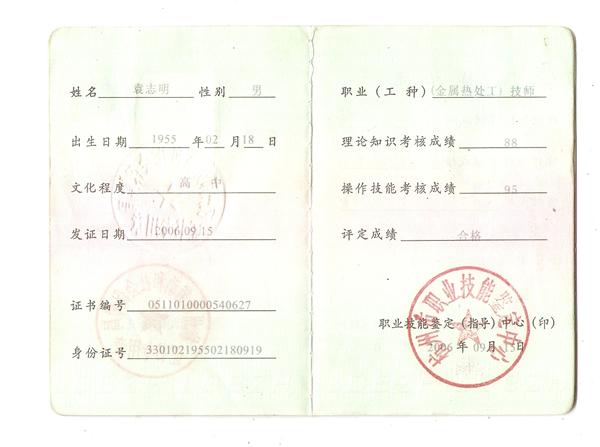 姓名 袁志明 性别 男
出生日期 1955 年 02 月 18 日
文化程度 高中
发证日期 2006.09.15
证书编号 0511010000540627
身份证号 330102195502180919
职业（工 种）(金属热处工) 技师
理论知识考核成绩 88
操作技能考核成绩 95
评定成绩 合格
职业技能鉴定（指导）中心（印）
2006 年 09 月 15日
杭州市职业技能鉴定中心